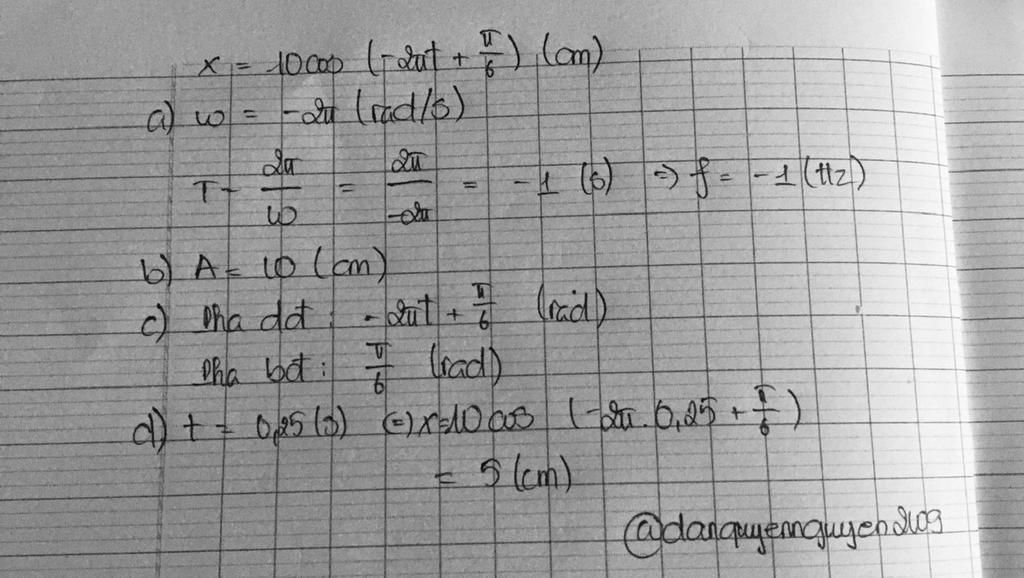 x = 10cos (-2πt + π/6) (cm)
a) ω = -2π (rad/s)
T = 2π/ω = 2π/-2π = -1 (s) => f = -1 (Hz)
b) A = 10 (cm)
c) Pha dđ : -2πt + π/6 (rad)
Pha bđ : π/6 (rad)
d) t = 0,25 (s) (=) x = 10 cos (-2π . 0,25 + π/6)
= 5 (cm)
@danquyennguyen2109